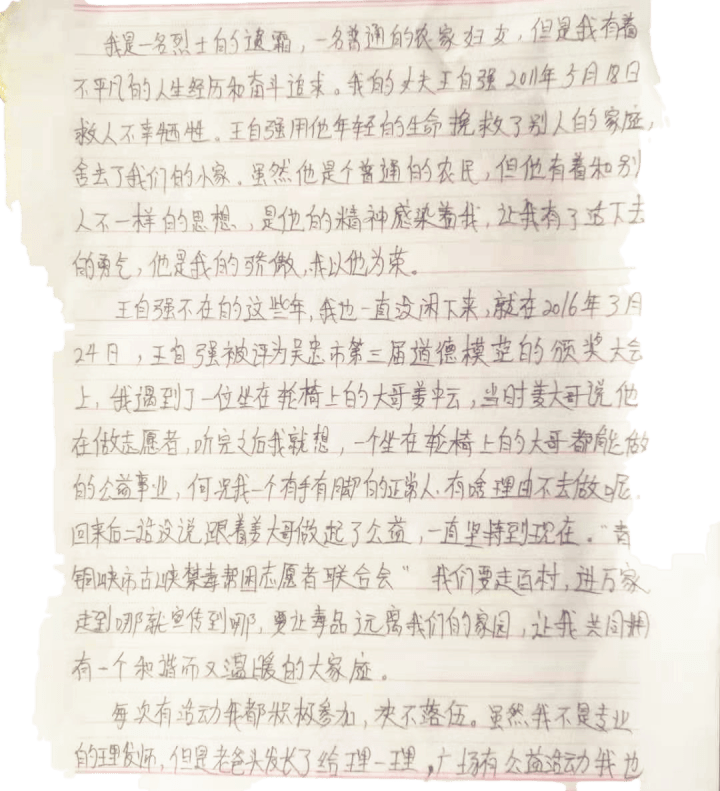 我是一名烈士的遗霜，一名普通的农家妇女，但是我有着
不平凡的人生经历和奋斗追求。我的丈夫王自强2011年5月18日
救人不幸牺牲。王自强用他年轻的生命挽救了别人的家庭，
舍去了我们的小家。虽然他是个普通的农民，但他有着和别
人不一样的思想，是他的精神感染着我，让我有了活下去
的勇气，他是我的骄傲，我以他为荣。
王自强不在的这些年，我也一直没闲下来，就在2016年3月
24日，王自强被评为吴忠市第三届道德模范的颁奖大会
上，我遇到了一位坐在轮椅上的大哥姜平云，当时姜大哥说他
在做志愿者，听完之后我就想，一个坐在轮椅上的大哥都能做
的公益事业，何况我一个有手有脚的正常人，有啥理由不去做呢。
回来后二话没说跟着姜大哥做起了公益，一直坚持到现在。“青
铜峡市古峡禁毒帮困志愿者联合会” 我们要走百村，进万家
走到哪就宣传到哪，要让毒品远离我们的家园，让我共同拥
有一个和谐而又温暖的大家庭。
每次有活动我都积极参加，决不落伍。虽然我不是专业
的理发师，但是老爸头发长了给理一理，广场有公益活动我也